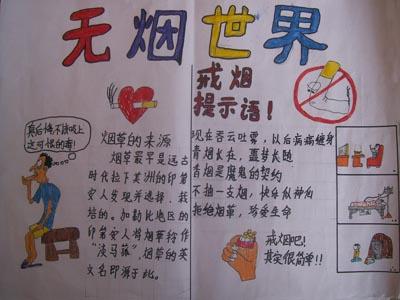 无烟世界
戒烟
提示语!
真后悔不该吸上
这可恨的毒!
烟草的来源
烟草最早是远古
时代拉丁美洲的印第
安人发现并选择、栽
培的。加勒比地区的
印第安人将烟草称作
“淡马菰”,烟草的英
文名即源于此。
现在吞云吐雾,以后病痛缠身
青烟长在,噩梦长随
青烟是魔鬼的契约
不抽一支烟,快乐似神仙
拒绝烟草,珍爱生命
戒烟吧!
其实很简单!!